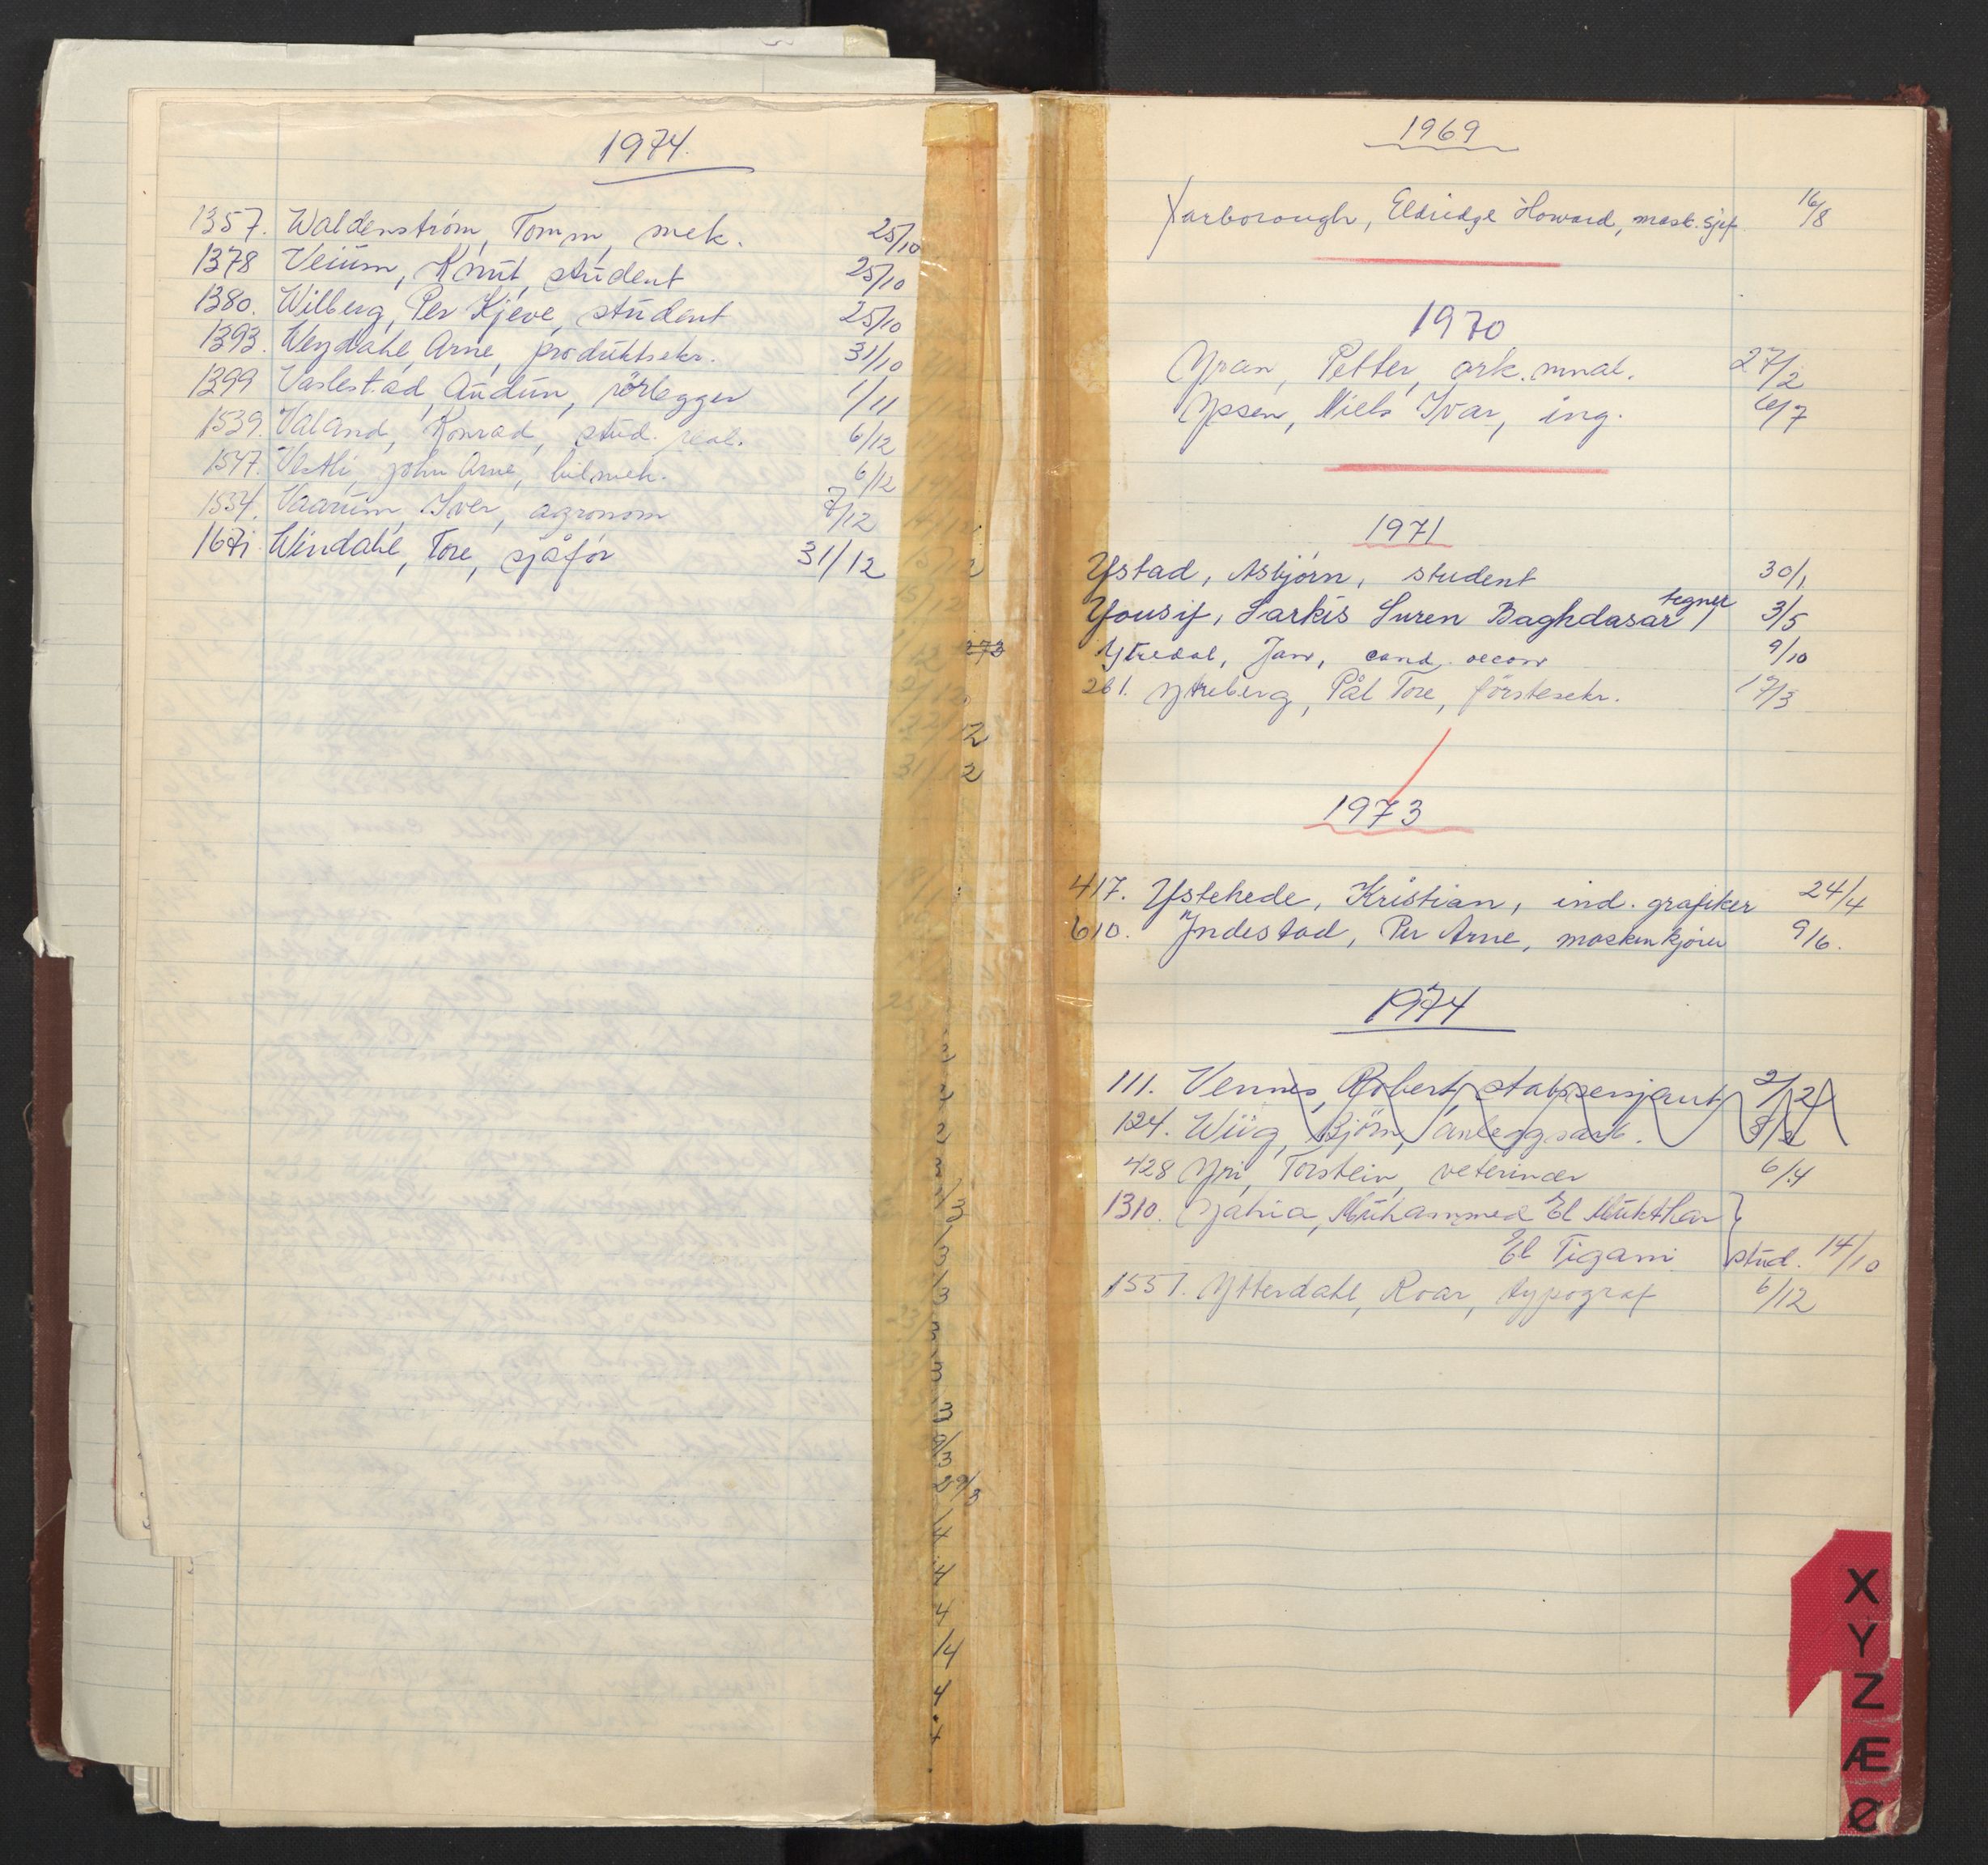 1974.
1357. Waldenström, Tomm, mek. 25/10
1378 Veium, Knut, student 25/10
1380. Wilberg, Per Kjeve, student 25/10
1393. Weydahl, Arne, produktsekr. 31/10
1399 Vaslestad, Audun, rörlegger 1/11
1539. Valand, Konrad, stud. real. 6/12
1547. Vestli, John Arne, bilmek. 6/12
1534. Vaarum, Iver, agronom 7/12
1671. Windahl, Tore, sjåfør 31/12
1969
Yarborough, Eldridge Howard, mask. sjef 16/8
1970
Yran, Petter, ark. mnal. 27/2
Ypsen, Niels Ivar, ing. 6/7
1971
Ystad, Asbjørn, student 30/1
Yousif, Sarkis Suren Baghdasar, tegner 3/5
Ytredal, Jan, cand. oecon 9/10
261. Ytreberg, Pål Tore, förstesekr. 17/3
1973
417. Ystehede, Kristian, ind. grafiker 24/4
610. Yndestad, Per Arne, maskinkjører 9/6.
1974
111. Vennes, Robert, stabssersjant 2/2
124. Wiig, Björn, anleggsarb. 8/2
428 Yri, Torstein, veterinær 6/4
1310. Yahia, Muhammed El Mukthar
El Tigani stud. 14/10
1551. Ytterdahl, Roar, typograf 6/12
X
Y
Z
Æ
Ø